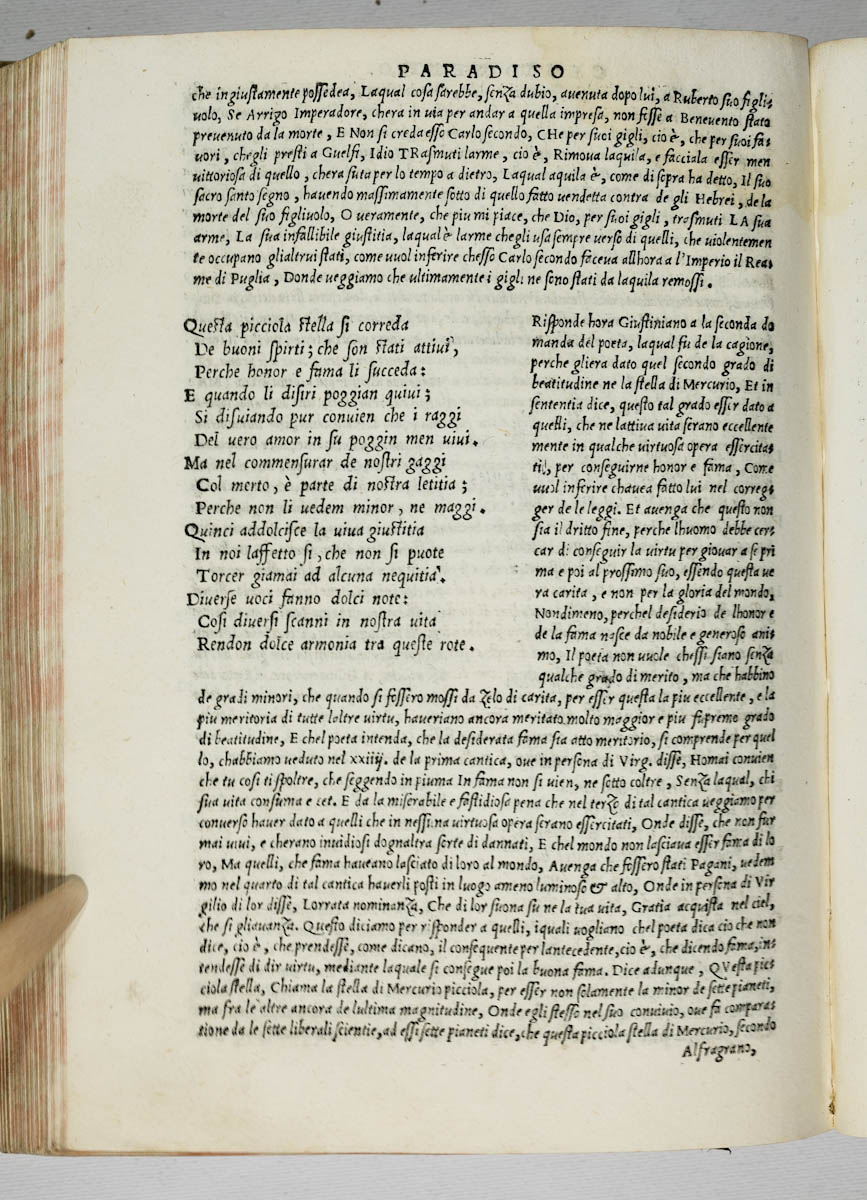 PARADISO
che ingiustamente possedea, Laqual cosa sarebbe, senza dubio, avenuta dopo lui, a Ruberto suo figli-
uolo, Se Arrigo Imperadore, chera in uia per andar a quella impresa, non fosse a Benevento stato
prevenuto da la morte, E Non si creda esso Carlo secondo, CHe per suoi gigli, cio è, che per suoi fa-
uori, chegli presti a Guelfi, Idio TRasmuti larme, cio è, Rimoua laquila, e facciala esser men
uittoriosa di quello, chera suta per lo tempo a dietro, Laqual aquila è, come di sopra ha detto, Il suo
sacro santo segno, hauendo massimamente sotto di quello fatto uendetta contra de gli Hebrei, de la
morte del suo figliuolo, O ueramente, che piu mi piace, che Dio, per suoi gigli, trasmuti LA sua
arme, La sua infallibile giustitia, laqual è larme chegli usa sempre uerso di quelli, che uiolentemen
te occupano glialtrui stati, come uuol inferire chesso Carlo secondo faceua allhora a l'Imperio il Rea-
me di Puglia, Donde ueggiamo che ultimamente i gigli ne sono stati da laquila remossi.
Questa picciola stella si correda
De buoni spirti; che son stati attiui,
Perche honor e fama li succeda:
E quando li disiri poggian quiui;
Si disuiando pur conuien che i raggi
Del uero amor in su poggin men uiui.
Ma nel commensurar de nostri gaggi
Col merto, è parte di nostra letitia;
Perche non li uedem minor, ne maggi.
Quinci addolcisce la uiua giustitia
In noi laffetto si, che non si puote
Torcer giamai ad alcuna nequitia.
Diuerse uoci fanno dolci note:
Cosi diuersi scanni in nostra uita
Rendon dolce armonia tra queste rote.
Risponde hora Giustiniano a la seconda do
manda del poeta, laqual fu de la cagione,
perche gliera dato quel secondo grado di
beatitudine ne la stella di Mercurio, Et in
sententia dice, questo tal grado esser dato a
quelli, che ne lattiua uita serano eccellente
mente in qualche uirtuosa opera essercita-
ti, per conseguirne honor e fama, Come
uuol inferire chauea fatto lui nel correg-
ger de le leggi. Et auenga che questo non
sia il dritto fine, perche lhuomo debbe cer-
car di conseguir la uirtu per giouar a se pri
ma e poi al prossimo suo, essendo questa ue
ra carita, e non per la gloria del mondo,
Nondimeno, perchel desiderio de lhonor e
de la fama nasce da nobile e generoso ani-
mo, Il poeta non uuole chessi siano senza
qualche grado di merito, ma che habbino
de gradi minori, che quando si fossero mossi da zelo di carita, per esser questa la piu eccellente, e la
piu meritoria di tutte laltre uirtu, haueriano ancora meritato molto maggior e piu supremo grado
di beatitudine, E chel poeta intenda, che la desiderata fama sia atto meritorio, si comprende per quel
lo, chabbiamo ueduto nel xxiiij. de la prima cantica, oue in persona di Virg. disse, Homai conuien
che tu cosi ti spoltre, che seggendo in piuma In fama non si uien, ne sotto coltre, Senza laqual, chi
sua uita consuma e cet. E da la miserabile e fastidiosa pena che nel terzo di tal cantica ueggiamo per
conuerso hauer dato a quelli che in nessuna uirtuosa opera serano essercitati, Onde disse, che non fur
mai uiui, e cherano inuidiosi dognaltra sorte di dannati, E chel mondo non lasciaua esser fama di lo
ro, Ma quelli, che fama haueano lasciato di loro al mondo, Auenga che fossero stati Pagani, uedem
mo nel quarto di tal cantica hauerli posti in luogo ameno luminoso & alto, Onde in persona di Vir
gilio di lor disse, Lorrata nominanza, Che di lor suona su ne la tua uita, Gratia acquista nel ciel,
che si gliauanza. Questo diciamo per risponder a quelli, iquali uogliano chel poeta dica cio che non
dice, cio è, che prendesse, come dicano, il consequente per lantecedente, cio è, che dicendo fama, in-
tendesse di dir uirtu, mediante laquale si consegue poi la buona fama. Dice adunque, QVesta pic-
ciola stella, Chiama la stella di Mercurio picciola, per esser non solamente la minor de sette pianeti,
ma fra le altre ancora de lultima magnitudine, Onde egli stesso nel suo conuiuio, oue fa compara-
tione da le sette liberali scientie, ad essi sette pianeti dice, che questa picciola stella di Mercurio, secondo
Alfragrano,